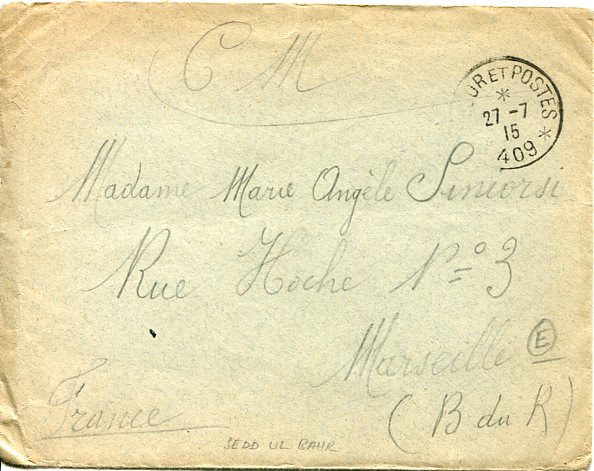 C M
OR ET POSTES
27 -7
15
409
Madame Marie Angèle Sincorsi
Rue Hoche N° 3
Marseille
E
(B du R)
France
SEDD UL BAHR